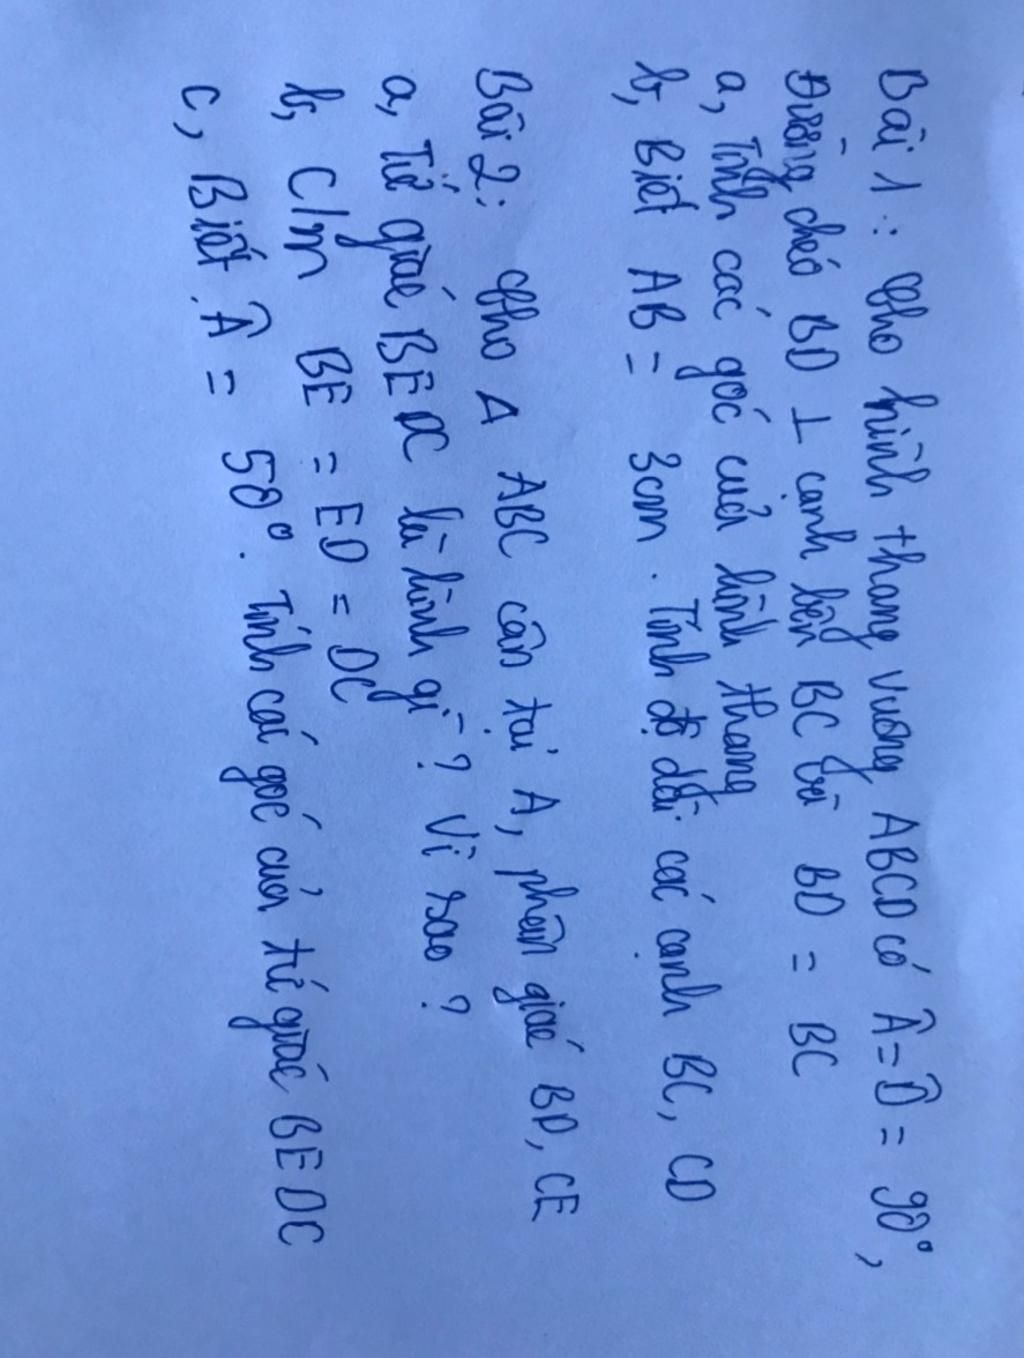 Bài 1: Cho hình thang vuông ABCD có Â = D̂ = 90°,
Đường chéo BD ⊥ cạnh bên BC và BD = BC
a, Tính các góc của hình thang
b, Biết AB = 3cm. Tính độ dài các cạnh BC, CD
Bài 2: Cho Δ ABC cân tại A, phân giác BD, CE
a, Tứ giác BEDC là hình gì? Vì sao?
b, C/m BE = ED = DC
c, Biết Â = 50°. Tính các góc của tứ giác BEDC